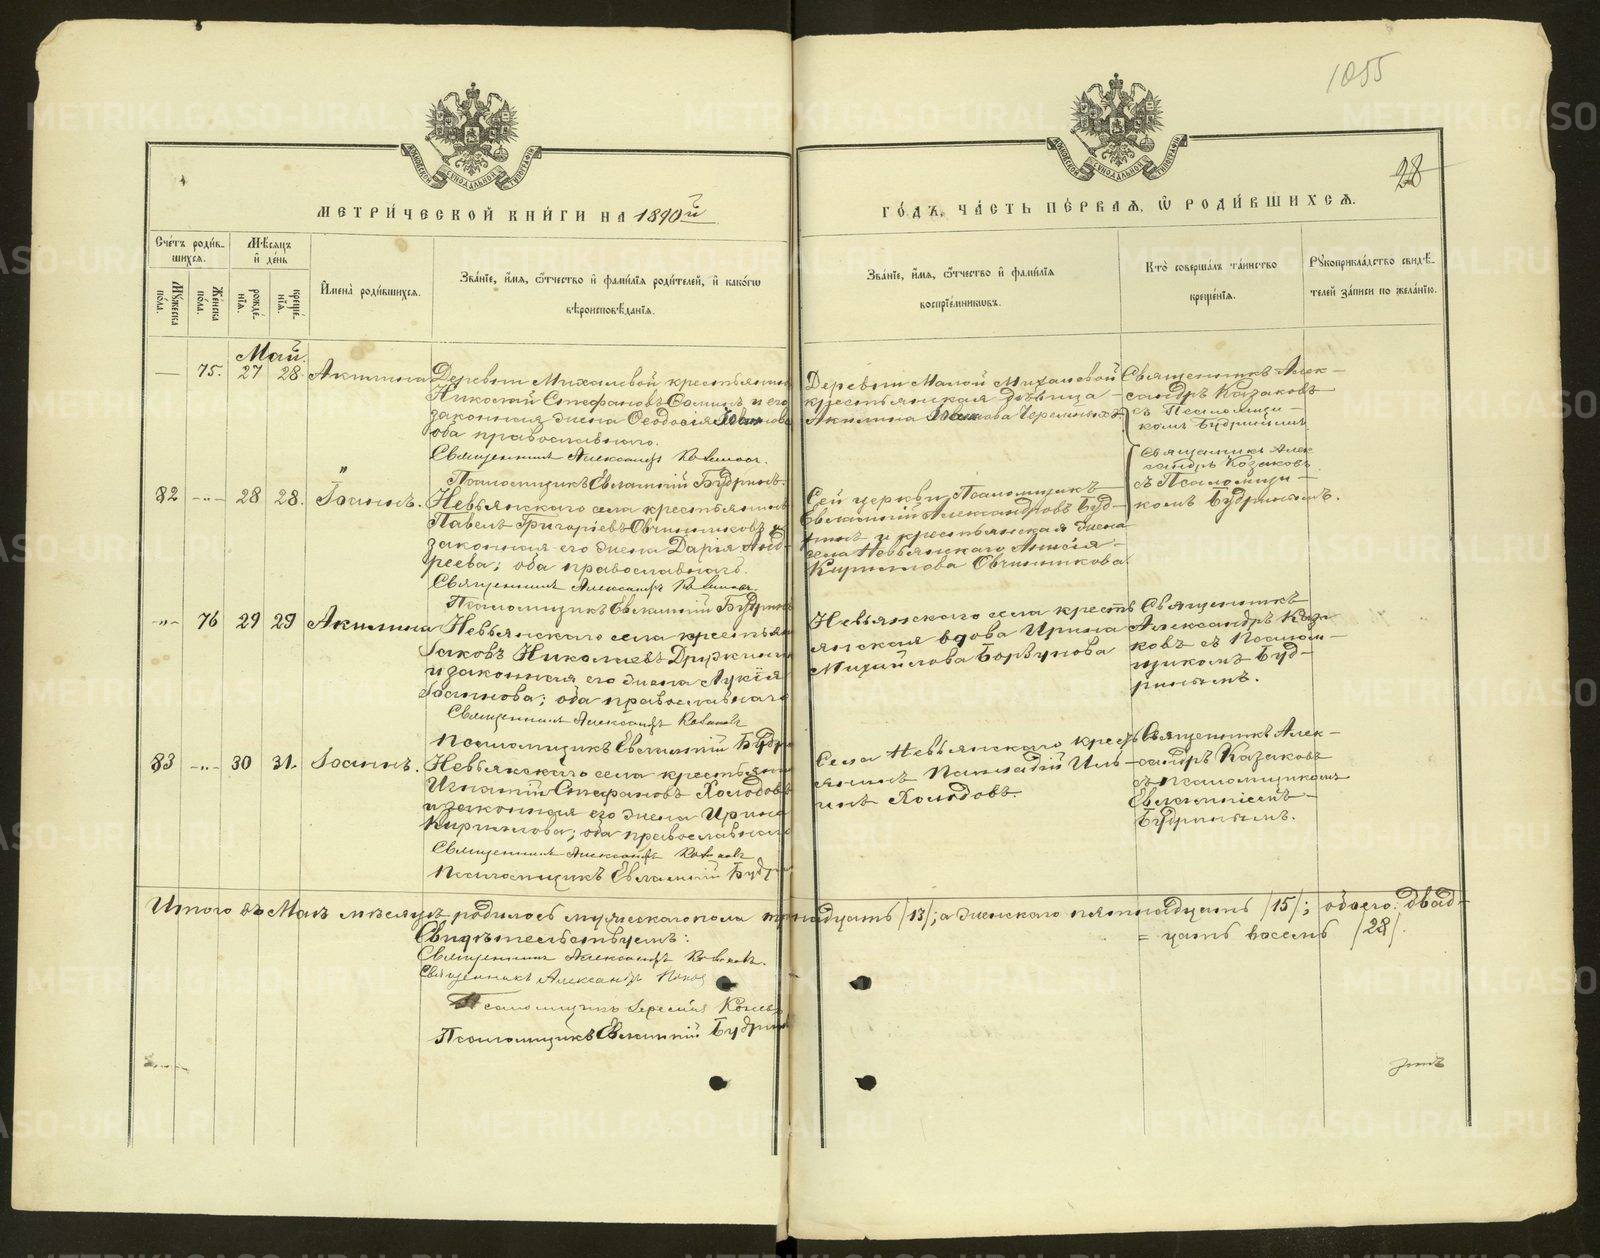 1055
28
МЕТРИ́ЧЕСКОЙ КНИ́ГИ НА 1890й
ГО́ДЪ, ЧА́СТЬ ПЕ́РВАЯ, Ѡ РОДИ́ВШИХСЯ.
Сче́тъ роди́в-
шихся.
Мѣ́сяцъ
и҆ де́нь
Мꙋ́жеска
по́ла.
Же́нска
по́ла.
рожде́-
нїя.
креще́-
нїя.
И҆мена̀ роди́вшихся.
Зва́нїе, и҆́мя, ѻ҆́тчество и҆ фами́лїя роди́телей, и҆ како́гѡ
вѣроисповѣ́данїя.
Зва́нїе, и҆́мя, ѻ҆́тчество и҆ фами́лїя
воспрїе́мникѡвъ.
Кто̀ соверша́лъ та́инство
креще́нїя.
Рꙋкоприкла́дство свидѣ́-
телей за́писи по жела́нїю.
Май.
— 75. 27 28. Акилина
Деревни Михалевой крестьянинъ
Николай Стефановъ Соминъ и его
законная жена Ѳеодосія Иванова
оба православнаго.
Священникъ Александръ Казаковъ.
Псаломщикъ Евлампій Будринъ.
Деревни Малой Михалевой
крестьянская дѣвица
Акилина Иванова Черемныхъ
Священникъ Алек-
сандръ Казаковъ
съ Псаломщи-
комъ Будринымъ
82 -„- 28 28. Іоаннъ.
Невьянскаго села крестьянинъ
Павелъ Григорьевъ Овчинниковъ и
законная его жена Дарія Анд-
реева; оба православнаго.
Священникъ Александръ Казаковъ.
Псаломщикъ Евлампій Будринъ
Сей церкви Псаломщикъ
Евлампій Александровъ Буд-
ринъ и крестьянская жена
села Невьянскаго Анисія
Кириллова Овчинникова.
Священникъ Алек-
сандръ Казаковъ
съ Псаломщи-
комъ Будринымъ.
-„- 76 29 29 Акилина
Невьянскаго села крестьянинъ
Іаковъ Николаевъ Дружининъ
и законная его жена Лукія
Іоаннова; оба православнаго
Священникъ Александръ Казаковъ
Псаломщикъ Евлампій Будринъ
Невьянскаго села кресть
янская вдова Ирина
Михайлова Борзунова
Священникъ
Александръ Каза
ковъ съ Псалом-
щикомъ Буд-
ринымъ.
83 -„- 30 31. Іоаннъ.
Невьянскаго села крестьянинъ
Игнатій Стефановъ Холодовъ
и законная его жена Ирина
Кириллова; оба православнаго
Священникъ Александръ Казаковъ
Псаломщикъ Евлампій Будр
Села Невьянскаго кресть
янинъ Палладій Иль-
инъ Холодовъ.
Священникъ Алек-
сандръ Казаковъ
съ псаломщикомъ
Евлампіемъ
Будринымъ.
Итого въ Маѣ мѣсяцѣ родилось мужескаго пола тринадцать /13/; а женскаго пятнадцать /15/; обоего: двад-
= цать восемь /28/.
Свидѣтельствуемъ:
Священникъ Александръ Казаковъ.
Священникъ Александръ
Псаломщикъ Іеремія Конев
Псаломщикъ Евлампій Будринъ